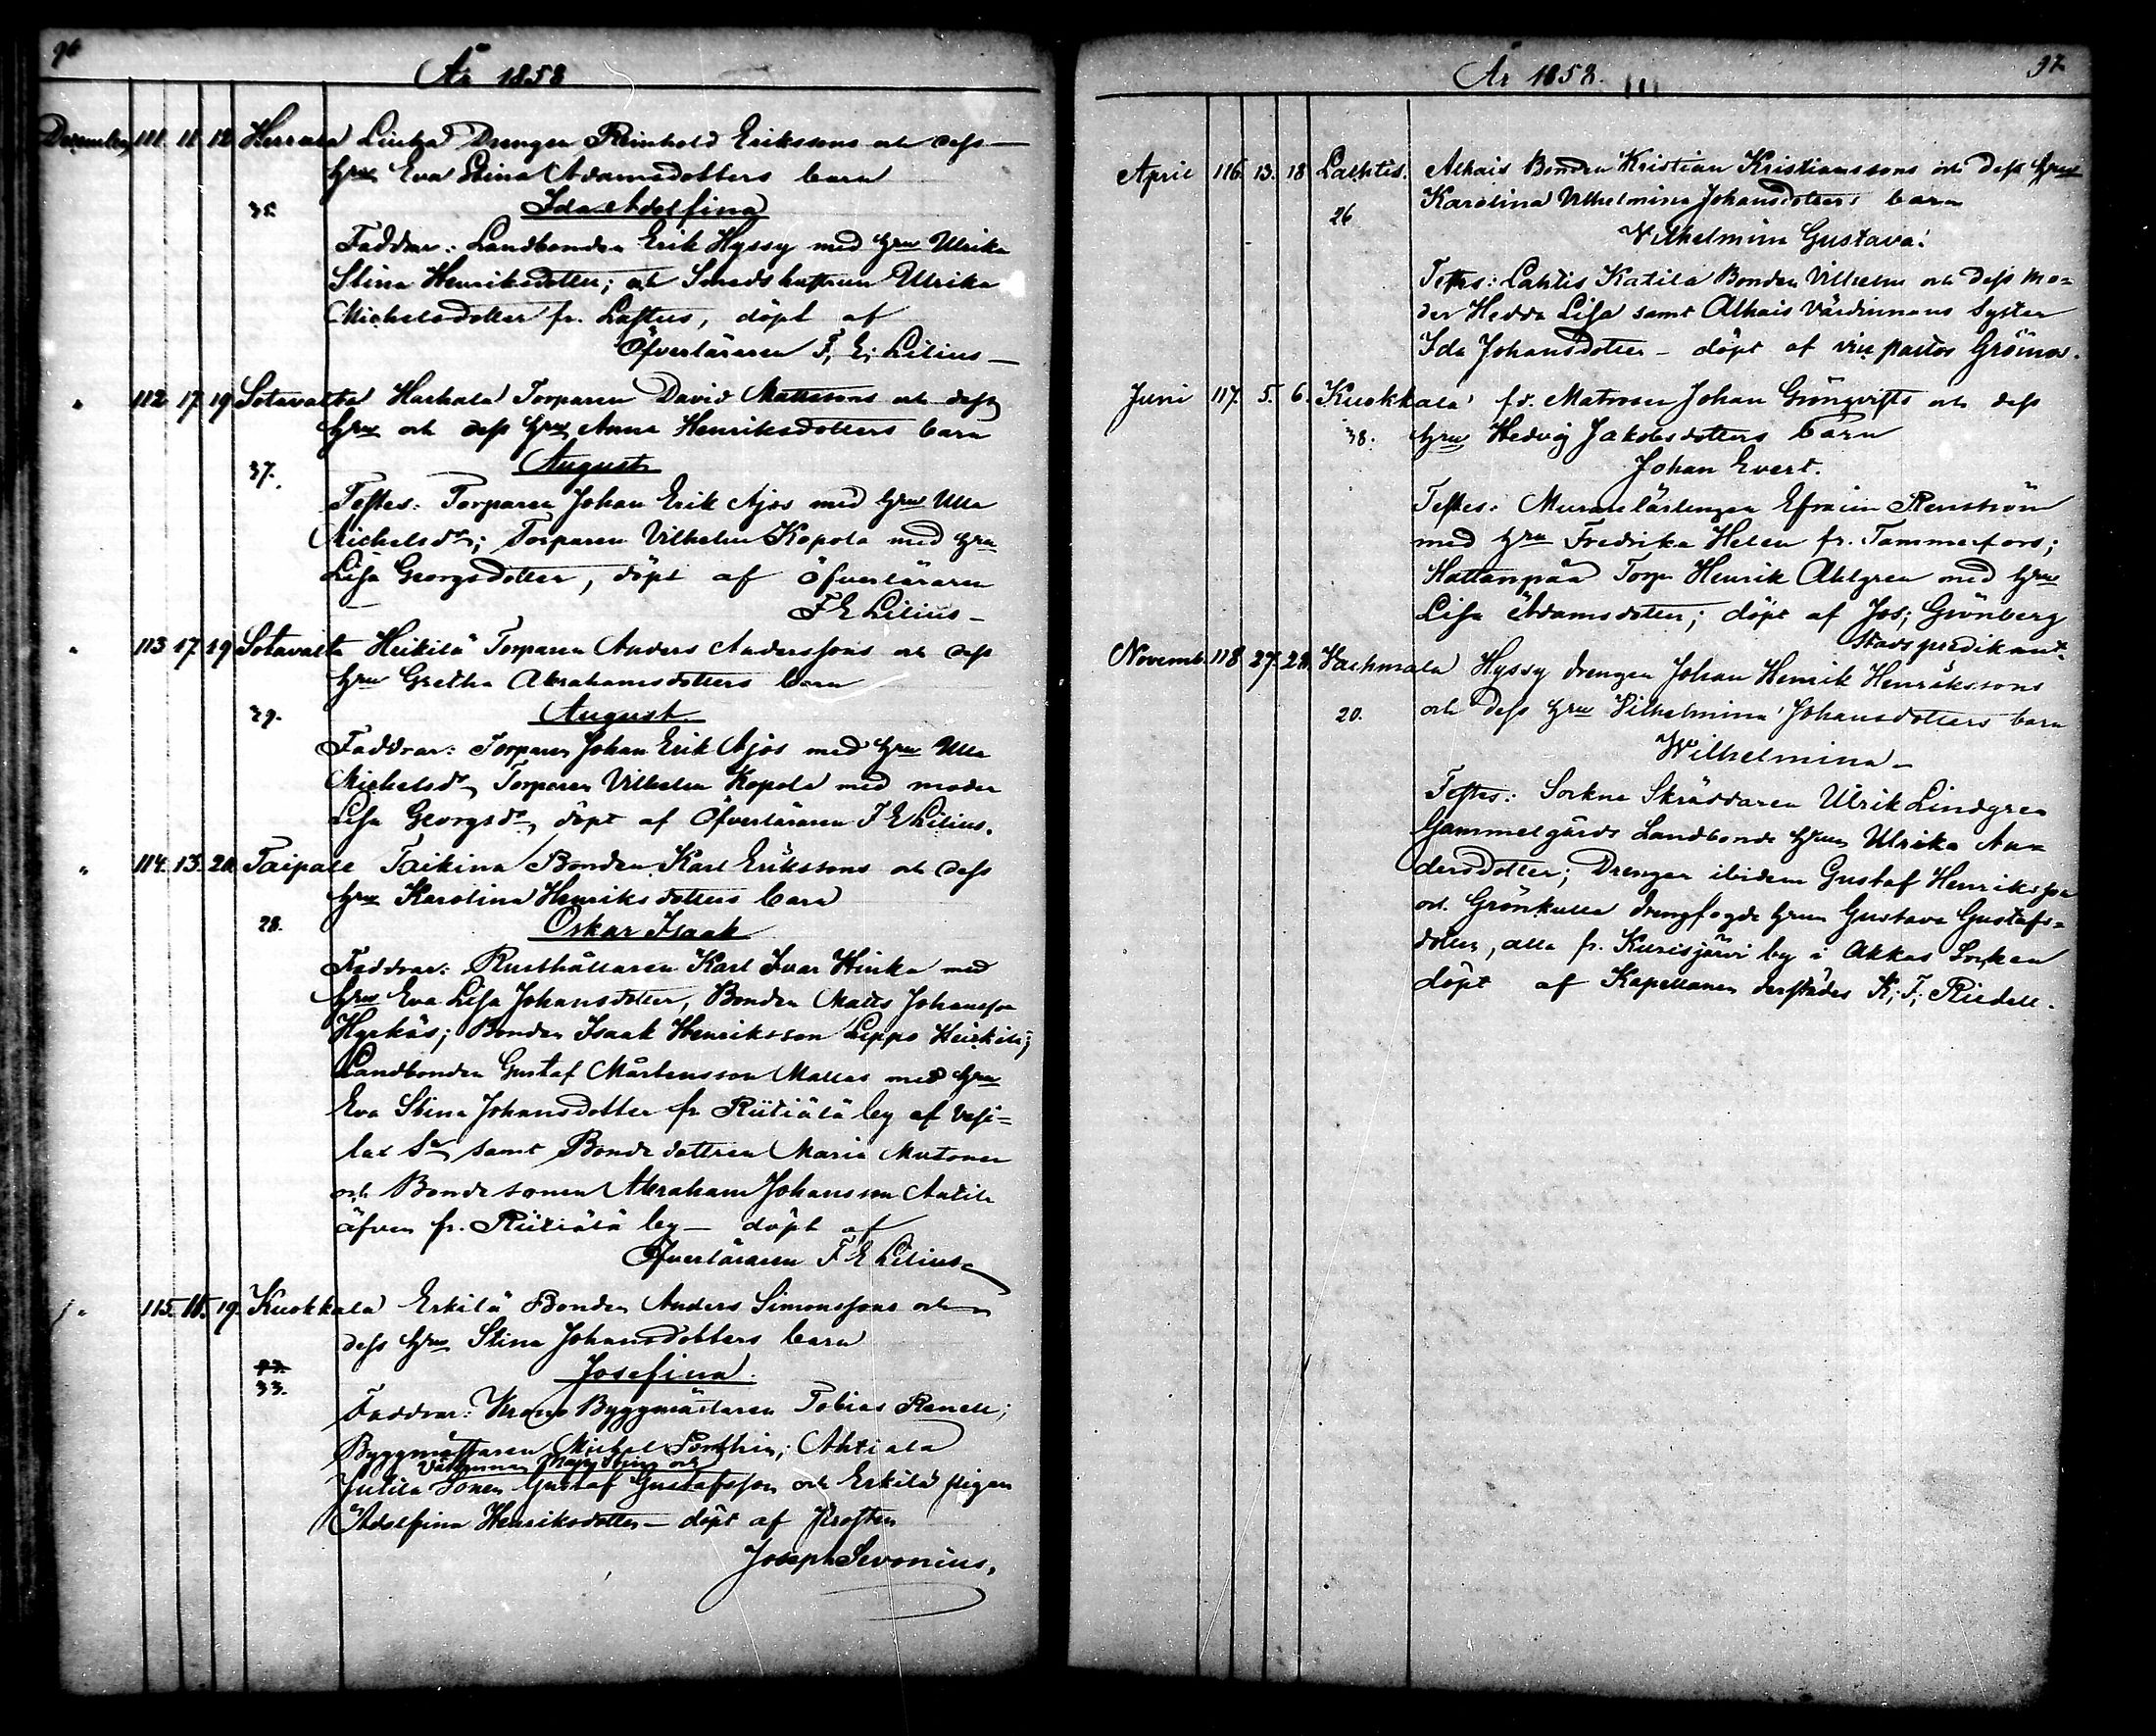 År 1858
December 111. 11. 12. Herrala Liukza Drengen Reinhold Erikssons och dess
hru Eva Stina Adamsdotters barn
35. Ida Adolfina
Faddrar: Landbonden Erik Hyssy med hru Ulrika
Stina Henriksdotter; och Smedshustrun Ulrika
Michelsdotter fr. Lastus, döpt af
Öfverläraren F. E. Lilius
" 112. 17. 19 Sotavalta Harhala Torparen David Mattssons och dess
hru och dess hru Anna Henriksdotters barn
37. August
Testes: Torparen Johan Erik Ajos med hru Ulla
Michelsdr; Torparen Vilhelm Kopola med hru
Lisa Georgsdotter, döpt af Öfverläraren
F E Lilius
" 113. 17. 19 Sotavalta Heikilä Torparen Anders Anderssons och dess
hru Gretha Abrahamsdotters barn
39. August
Faddrar: Torparen Johan Erik Ajos med hru Ulla
Michelsdr, Torparen Vilhelm Kopola med moder
Lisa Georgsdr, döpt af Öfverläraren F E Lilius.
" 114. 13. 20. Taipale Taikina Bonden Karl Erikssons och dess
hru Karolina Henriksdotters barn
28. Oskar Isaak
Faddrar: Rusthållaren Karl Ivar Hinka med
hru Eva Lisa Johansdotter, Bonden Matts Johansson
Hyrkäs; Bonden Isaak Henriksson Leppo Heikilä;
Landbonden Gustaf Mårtensson Mattas med hru
Eva Stina Johansdotter fr Riitiälä by af Vesi-
lax Sn samt Bondedottren Maria Mutonen
och Bondesonen Abraham Johansson Antila
äfven fr. Riitiälä by – döpt af
Öfverläraren F E Lilius
" 115. 18. 19. Kuokkala Erkilä Bonden Anders Simonssons och
dess hru Stina Johansdotters barn
33. Josefina
Faddrar: Krono Byggmästaren Tobias Renell;
Byggmästaren Michel; Ahtiala
Värdinnan Maja Stina och
Jutila Sonen Gustaf Gustafsson och Erkilä pigan
Adolfina Henriksdotter – döpt af Prosten
Joseph Sevonius.
År 1858. 97
April 116. 13. 18 Lachtis. Alhais Bonden Kristian Kristianssons och dess hru
Karolina Vilhelmina Johansdotters barn
26 Wilhelmina Gustava.
Testes: Lahtis Katila Bonden Vilhelm och dess mo-
der Hedda Lisa samt Alhais värdinnans Syster
Ida Johansdotter – döpt af vice pastor Grönor.
Juni 117. 5. 6. Kuokkala f.d. Matrosen Johan Grönqvists och dess
38. hru Hedvig Jakobsdotters barn
Johan Evert.
Testes: Murarelärlingen Efraim Renström
med hru Fredrika Helen fr. Tammerfors;
Hattanpää Torp. Henrik Ahlgren med hru
Lisa Adamsdotter; döpt af Jos; Grönberg
Stadspredikant.
Novemb. 118. 27. 28. Hachmala Hyssy drengen Johan Henrik Henrikssons
20. och dess hru Vilhelmina Johansdotters barn
Wilhelmina
Testes: Sockne Skräddaren Ulrik Lindgren
Gammelgårds Landbonde hrun Ulrika An-
dersdotter; Drengen ibidem Gustaf Henriksson
och Grönkulla drengfogde hrun Gustava Gustafs-
dotter, alla fr. Kurisjärvi by i Akkas Socken
döpt af Kapellanen derstädes K. F. Riedell.